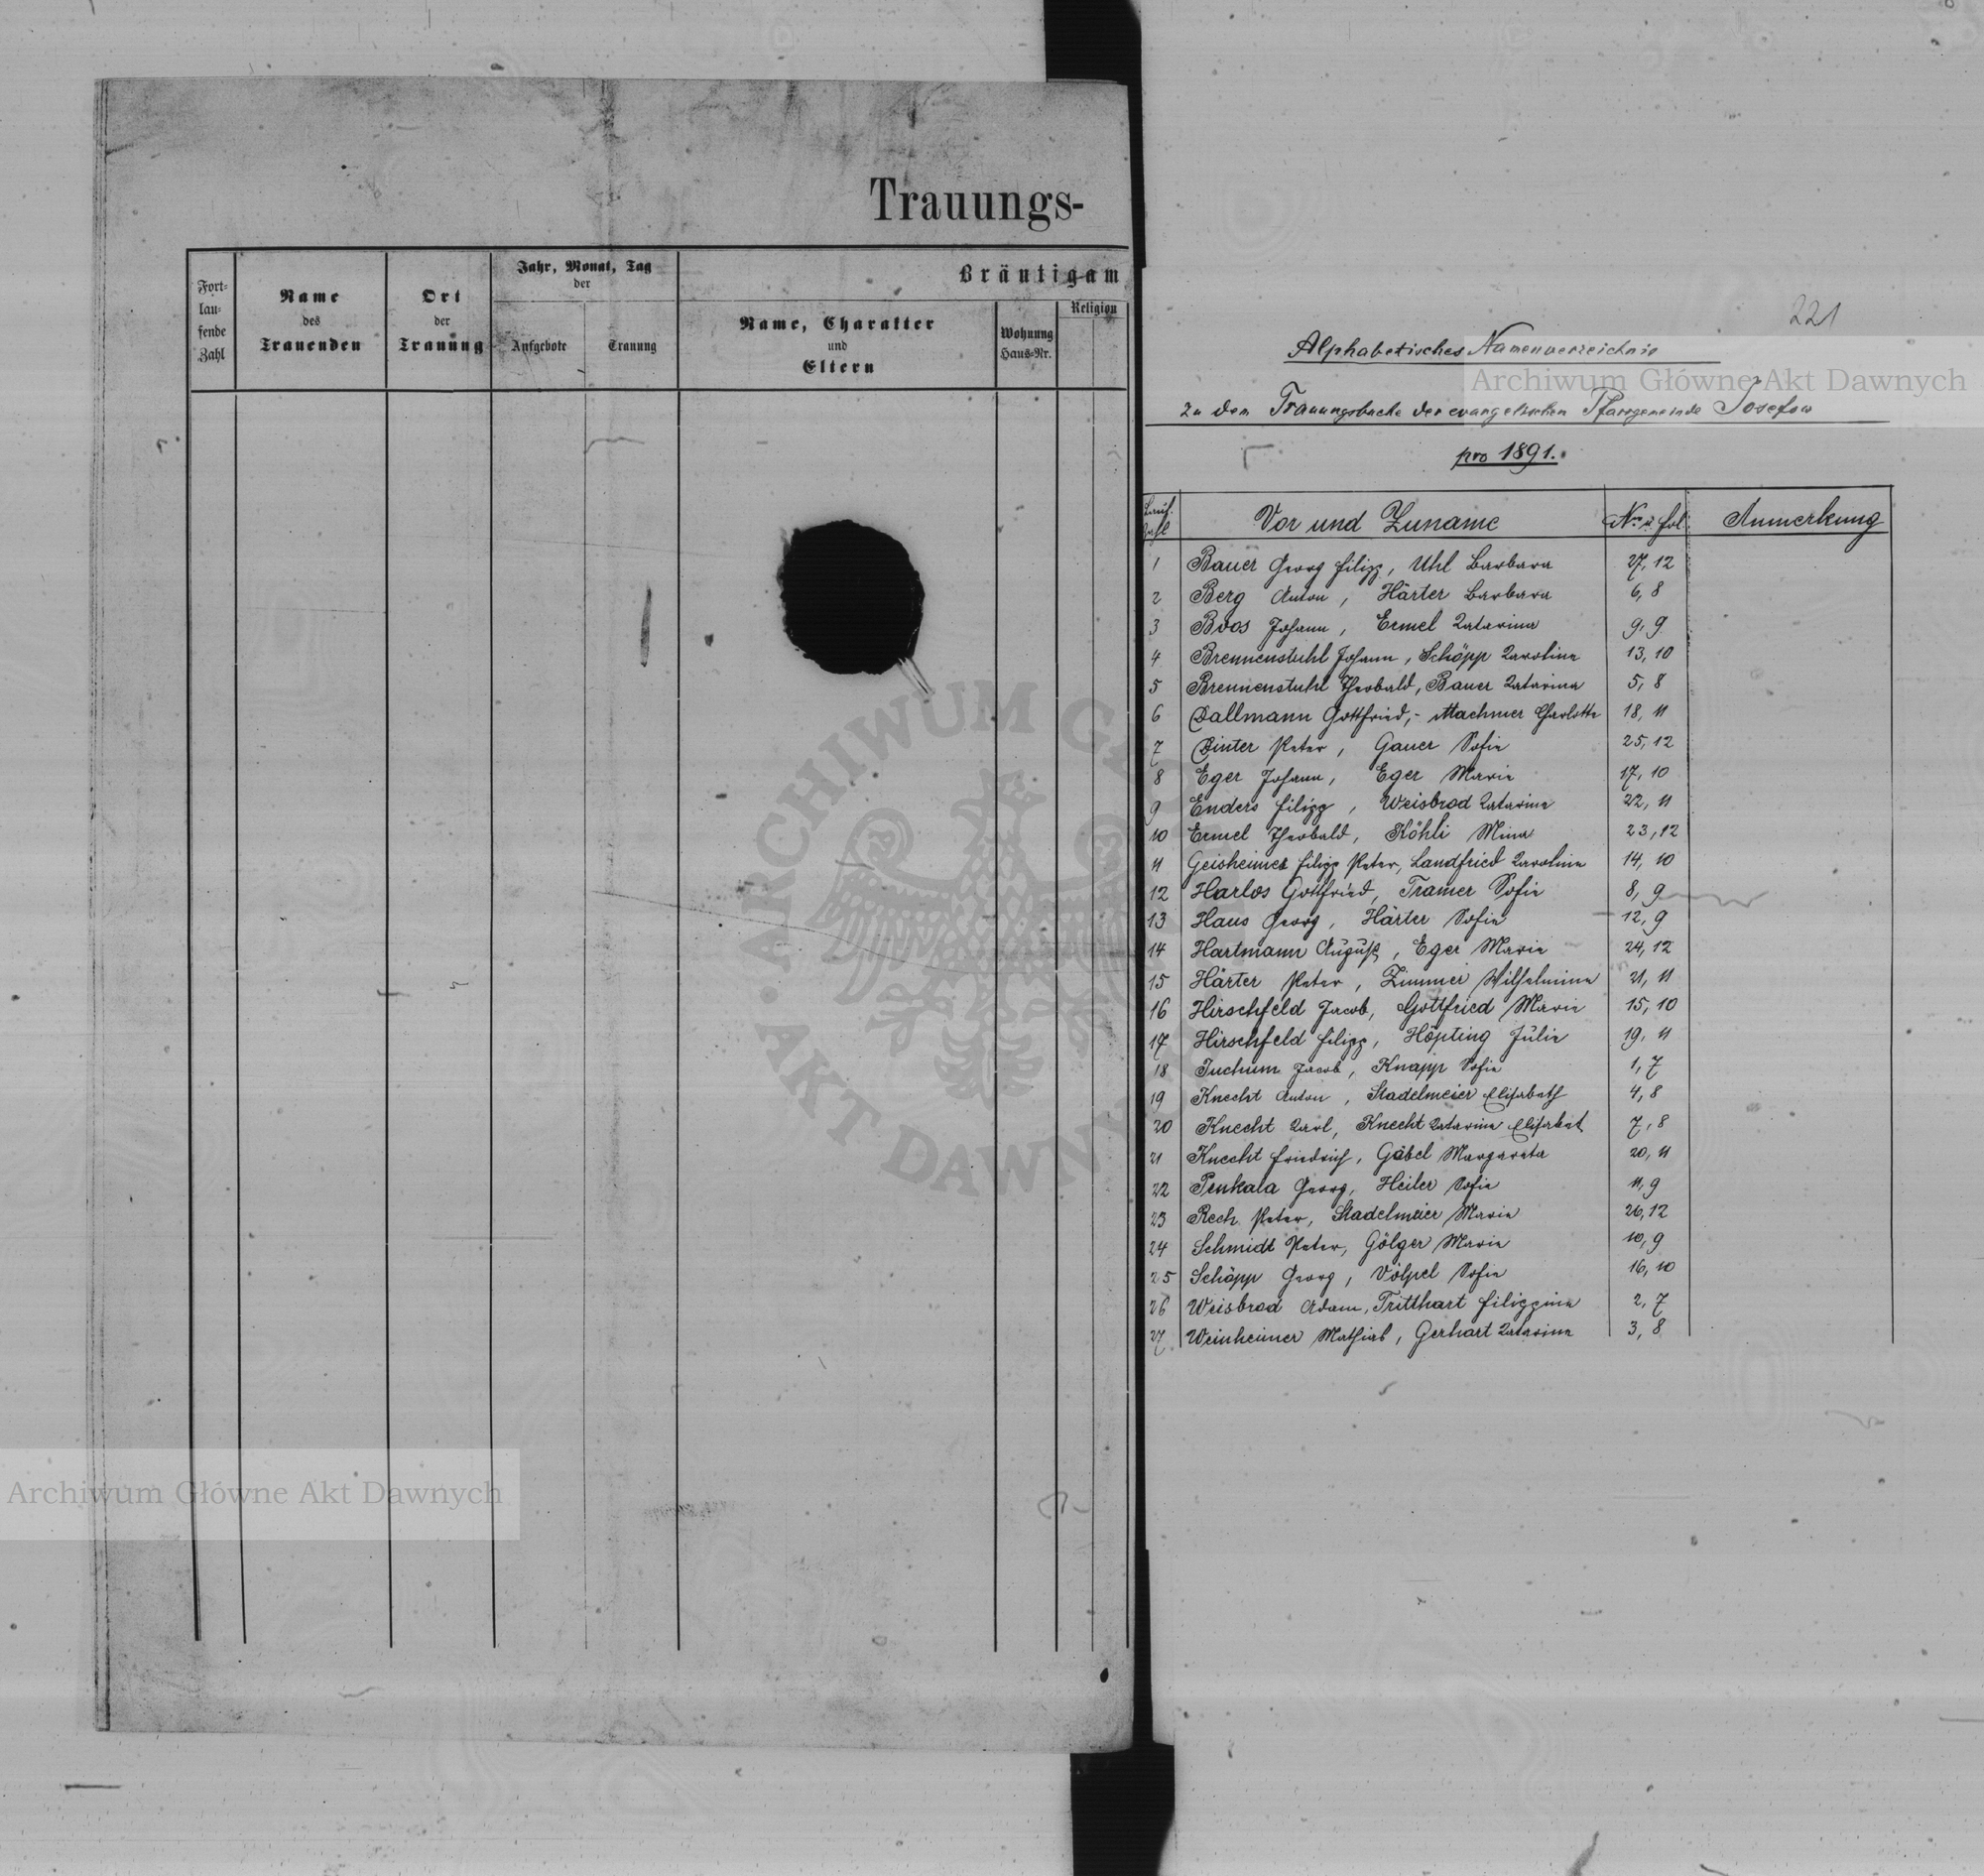 Trauungs-
Fort-
lau-
fende
Zahl
Name
des
Trauenden
Ort
der
Trauung
Jahr, Monat, Tag
der
Aufgebote
Trauung
Bräutigam
Name, Charakter
und
Eltern
Wohnung
Haus-Nr.
Religion
221
Alphabetisches Namenverzeichnis
zu dem Trauungsbuche der evangelischen Pfarrgemeinde Josefow
pro 1891.
Lauf. Zahl Vor und Zuname Nr. u. fol. Anmerkung
1 Bauer Georg Filipp, Uhl Barbara 27, 12
2 Berg Anton, Härter Barbara 6, 8
3 Boos Johann, Ermel Katarina 9, 9
4 Brennenstuhl Johann, Schöpp Karolina 13, 10
5 Brennenstuhl Theobald, Bauer Katarina 5, 8
6 Dallmann Gottfried, - Machmer Charlotte 18, 11
7 Dinter Peter, Gauer Sofie 25, 12
8 Eger Johann, Eger Marie 17, 10
9 Enders Filipp, Weisbrod Katarina 22, 11
10 Ermel Theobald, Köhli Mina 23, 12
11 Geisheimer Filipp Peter, Landfried Karolina 14, 10
12 Harlos Gottfried, Tramer Sofie 8, 9
13 Haus Georg, Härter Sofie 12, 9
14 Hartmann August, Eger Marie 24, 12
15 Härter Peter, Zimmer Wilhelmine 21, 11
16 Hirschfeld Jacob, Gottfried Marie 15, 10
17 Hirschfeld Filipp, Höpting Julie 19, 11
18 Juchum Jacob, Knapp Sofie 1, 7
19 Knecht Anton, Stadelmeier Elisabeth 4, 8
20 Knecht Karl, Knecht Katarina Elisabet 7, 8
21 Knecht Friedrich, Gäbel Margareta 20, 11
22 Penkala Georg, Heiler Sofie 11, 9
23 Rech Peter, Stadelmeier Marie 26, 12
24 Schmidt Peter, Gölger Marie 10, 9
25 Schöpp Georg, Völpel Sofie 16, 10
26 Weisbrod Adam, Tritthart Filippina 2, 7
27 Weinheimer Mathias, Gerhart Katarina 3, 8
Archiwum Główne Akt Dawnych
Archiwum Główne Akt Dawnych